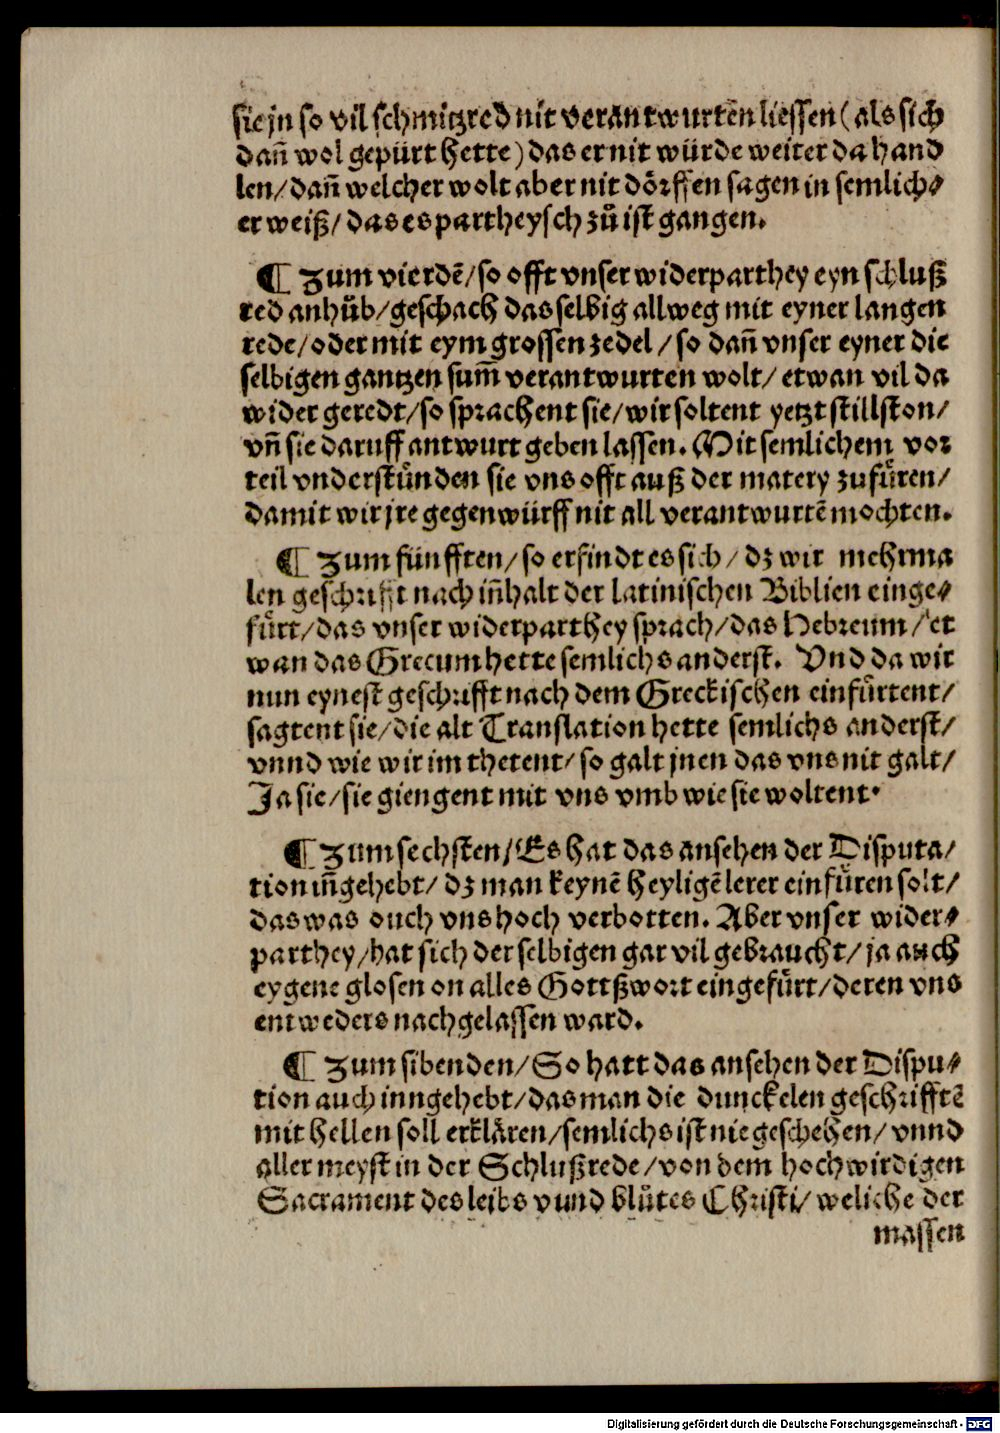 sie jn so vil schmitzred nit verantwurtẽn liessen (als sich
dañ wol gepürt hette) das er nit würde weiter da hand
len/ dañ welcher wolt aber nit dörffen sagen in semlich⸗
er weiß/ das es partheysch zů ist gangen.
¶ Zum vierdẽ/ so offt vnser widerparthey eyn schluß
red anhůb/ geschach das selbig allweg mit eyner langen
rede/ oder mit eym grossen zedel/ so dañ vnser eyner die
selbigen gantzen sum̃ verantwurten wolt/ etwan vil da
wider geredt/ so sprachent sie/ wir soltent yetzt stillston/
vñ sie daruff antwurt geben lassen. Mit semlichem vor
teil vnderstůnden sie vns offt auß der matery zufüren/
damit wir jre gegenwürff nit all verantwurtẽ mochten.
¶ Zum fünfften/ so erfindt es sich/ dz wir mehrma
len geschrifft nach iñhalt der latinischen Biblien einge⸗
fürt/ das vnser widerparthey sprach/ das Hebreum/ et
wan das Grecum hette semlichs anderst. Vnd da wir
nun eynest geschrifft nach dem Greckischen einfürtent/
sagtent sie/ die alt Translation hette semlichs anderst/
vnnd wie wir im thetent/ so galt jnen das vns nit galt/
Ja sie/ sie giengent mit vns vmb wie sie woltent.
¶ Zum sechsten/ Es hat das ansehen der Disputa/
tion iñgehebt/ dz man keynẽ heyligẽ lerer einfüren solt/
das was ouch vns hoch verbotten. Aber vnser wider⸗
parthey/ hat sich der selbigen gar vil gebraucht/ ja auch
eygene glosen on alles Gottßwort eingefürt/ deren vns
entweders nachgelassen ward.
¶ Zum sibenden/ So hatt das ansehen der Dispu⸗
tion auch inngehebt/ das man die dunckelen geschrifftẽ
mit hellen soll erklären/ semlichs ist nie geschehen/ vnnd
aller meyst in der Schlußrede/ von dem hochwirdigen
Sacrament des leibs vnnd blůtes Christi/ weliche der
massen
Digitalisierung gefördert durch die Deutsche Forschungsgemeinschaft - DFG